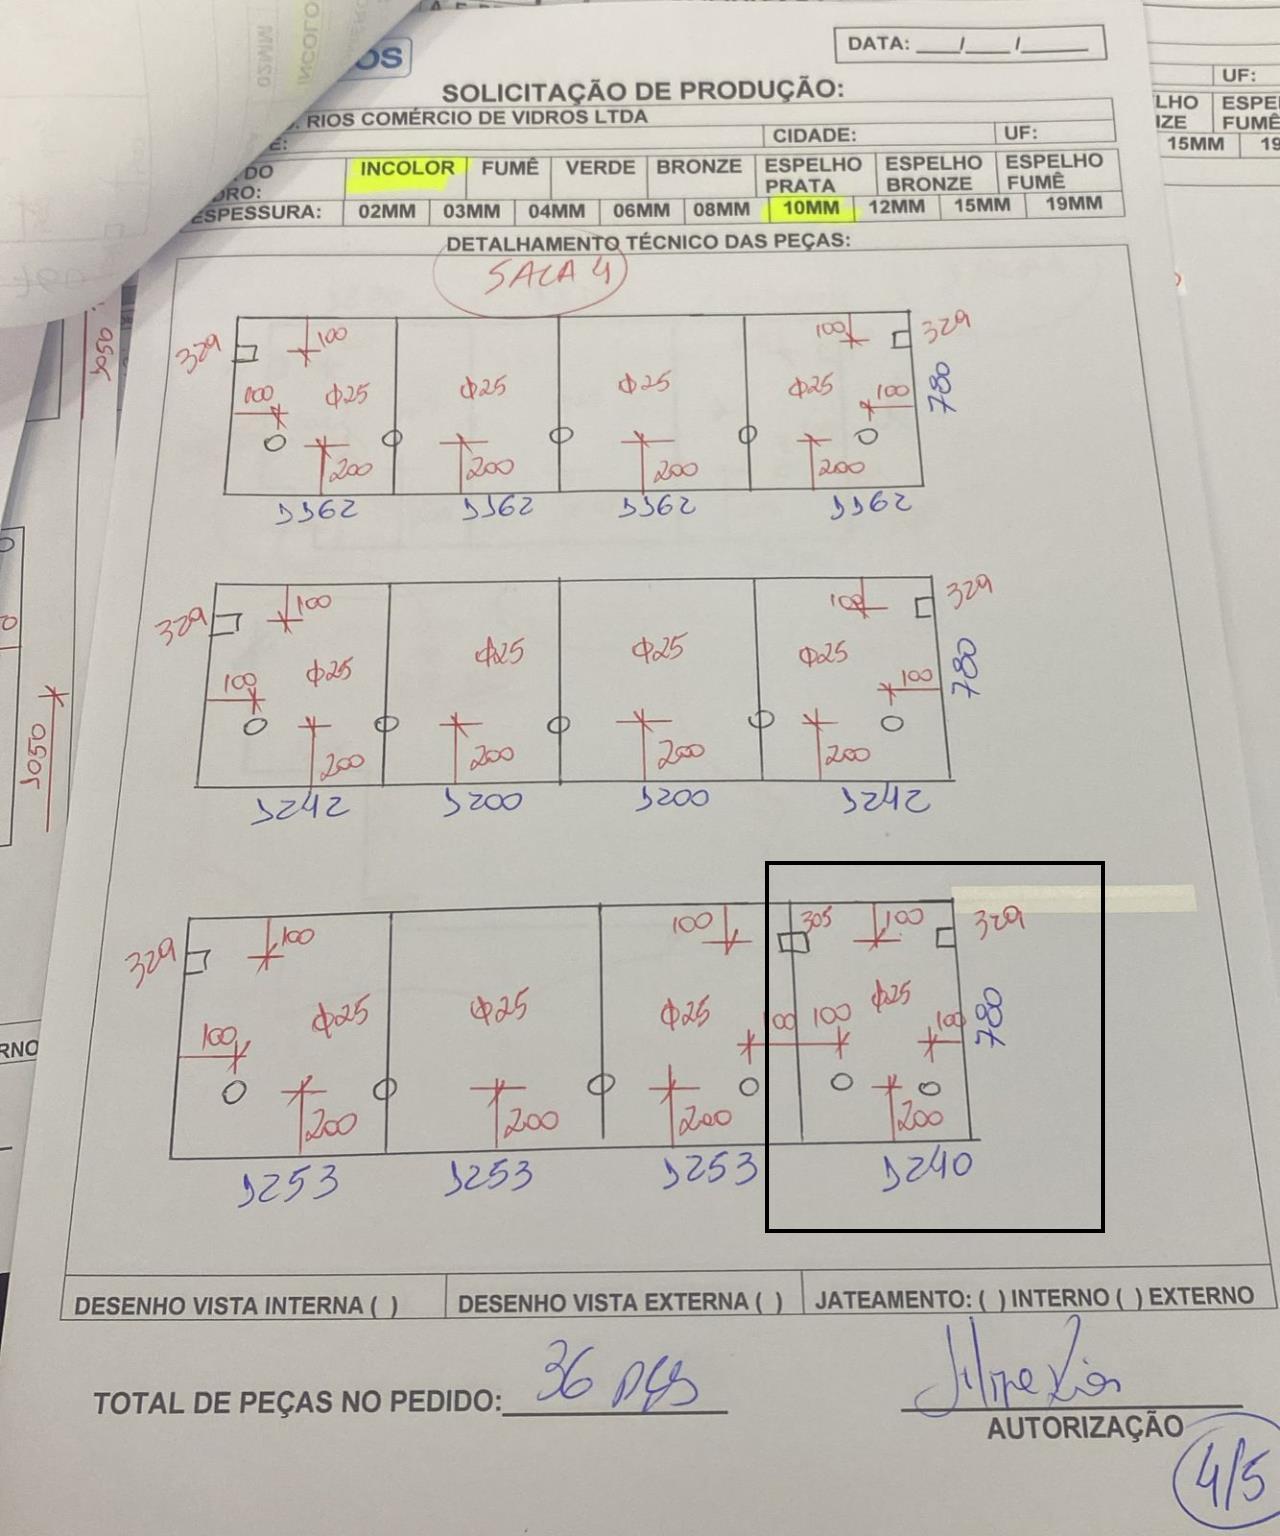 DATA: ___/___/_____
OS
SOLICITAÇÃO DE PRODUÇÃO:
RIOS COMÉRCIO DE VIDROS LTDA
E: CIDADE: UF:
DO INCOLOR FUMÊ VERDE BRONZE ESPELHO PRATA ESPELHO BRONZE ESPELHO FUMÊ
DRO:
ESPESSURA: 02MM 03MM 04MM 06MM 08MM 10MM 12MM 15MM 19MM
DETALHAMENTO TÉCNICO DAS PEÇAS:
SALA 4
329 100 100 329
100 Φ25 Φ25 Φ25 Φ25 100 780
200 200 200 200
1162 1162 1162 1162
329 100 100 329
100 Φ25 Φ25 Φ25 Φ25 100 780
200 200 200 200
1242 1200 1200 1242
329 100 100 305 100 329
100 Φ25 Φ25 Φ25 100 100 Φ25 100 780
200 200 200 200
1253 1253 1253 1240
DESENHO VISTA INTERNA ( ) DESENHO VISTA EXTERNA ( ) JATEAMENTO: ( ) INTERNO ( ) EXTERNO
TOTAL DE PEÇAS NO PEDIDO: 36 pçs
Filipe Rios
AUTORIZAÇÃO
4/5
UF:
LHO ESPE
IZE FUMÊ
15MM 19
1050
1050
RNO